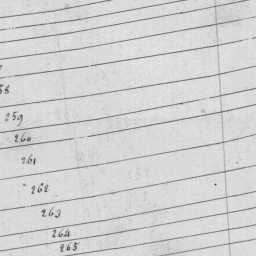 259
260
261
262
263
264
265